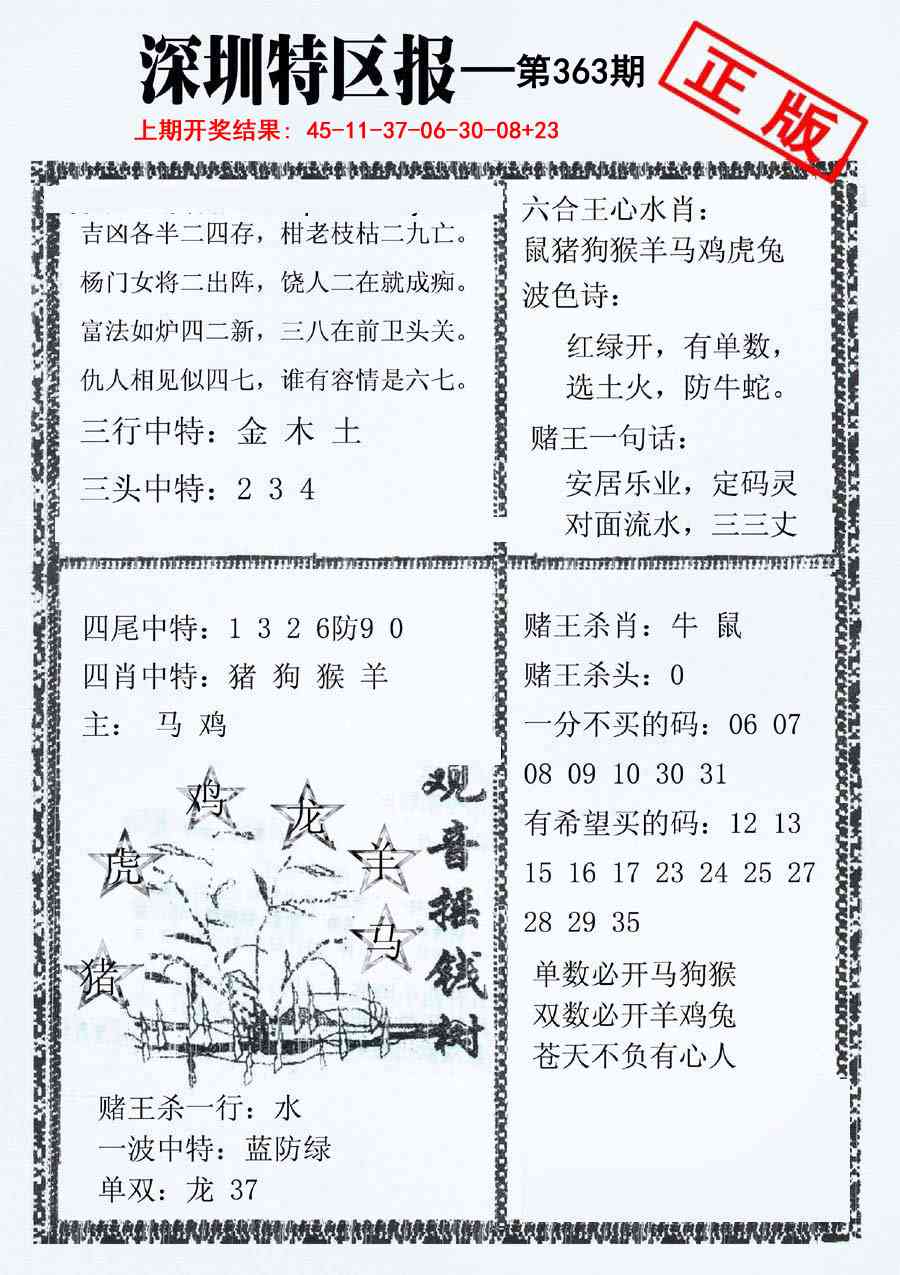 深圳特区报—第363期
正版
上期开奖结果: 45-11-37-06-30-08+23
吉凶各半二四存，柑老枝枯二九亡。
杨门女将二出阵，饶人二在就成痴。
富法如炉四二新，三八在前卫头关。
仇人相见似四七，谁有容情是六七。
三行中特：金 木 土
三头中特：2 3 4
六合王心水肖：
鼠猪狗猴羊马鸡虎兔
波色诗：
红绿开，有单数，
选土火，防牛蛇。
赌王一句话：
安居乐业，定码灵
对面流水，三三丈
四尾中特：1 3 2 6防9 0
四肖中特：猪 狗 猴 羊
主： 马 鸡
鸡
龙
虎
羊
马
猪
观音摇钱树
赌王杀一行：水
一波中特：蓝防绿
单双：龙 37
赌王杀肖：牛 鼠
赌王杀头：0
一分不买的码：06 07
08 09 10 30 31
有希望买的码：12 13
15 16 17 23 24 25 27
28 29 35
单数必开马狗猴
双数必开羊鸡兔
苍天不负有心人